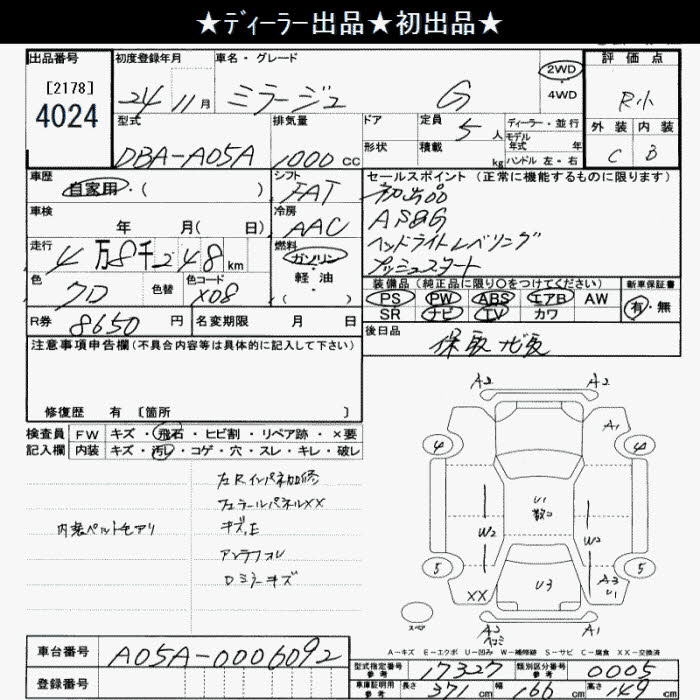 ★ディーラー出品★初出品★
出品番号
[2178]
4024
初度登録年月 24 11月
車名・グレード ミラージュ G
2WD ・4WD
評価点
R小
外装 内装
C B
型式 DBA-A05A
排気量 1000 cc
ドア 形状
定員 5人
積載 kg
ディーラー・並行
モデル年式 年
ハンドル 左・右
車歴 自家用・( )
シフト FAT
車検 年 月( 日)
冷房 AAC
走行 4万8千248km
燃料 ガソリン
軽・油
( )
色 クロ
色替
色コード X08
R券 8650円
名変期限 月 日
セールスポイント(正常に機能するものに限ります)
初出品
AS&G
ヘッドライトレベリング
プッシュスタート
装備品(純正品に限り○をつけてください) 新車保証書
PS PW ABS エアB AW 有・無
SR ナビ TV カワ
後日品
保取ナビ取
注意事項申告欄(不具合内容等は具体的に記入して下さい)
修復歴 有 [箇所 ]
検査員 FW キズ・飛石・ヒビ割・リペア跡・×要
記入欄 内装 キズ・汚れ・コゲ・穴・スレ・キレ・破レ
内装ペットモアリ
左Rインパネ加修
フェラールパネルXX
キズ,E
アンテナオレ
Dミラーキズ
A2 A2
A1
4 4
U1
W2 W2
5 5
XX U3 A3
U1
スペア
A2 A1
A-キズ E-エクボ U-凹み W-補修跡 S-サビ C-腐食 XX-交換済
車台番号 A05A-0006092
登録番号
型式指定番号 参考 17327
類別区分番号 参考 0005
車庫証明用 参考 長さ 371cm 幅 166cm 高さ 149cm